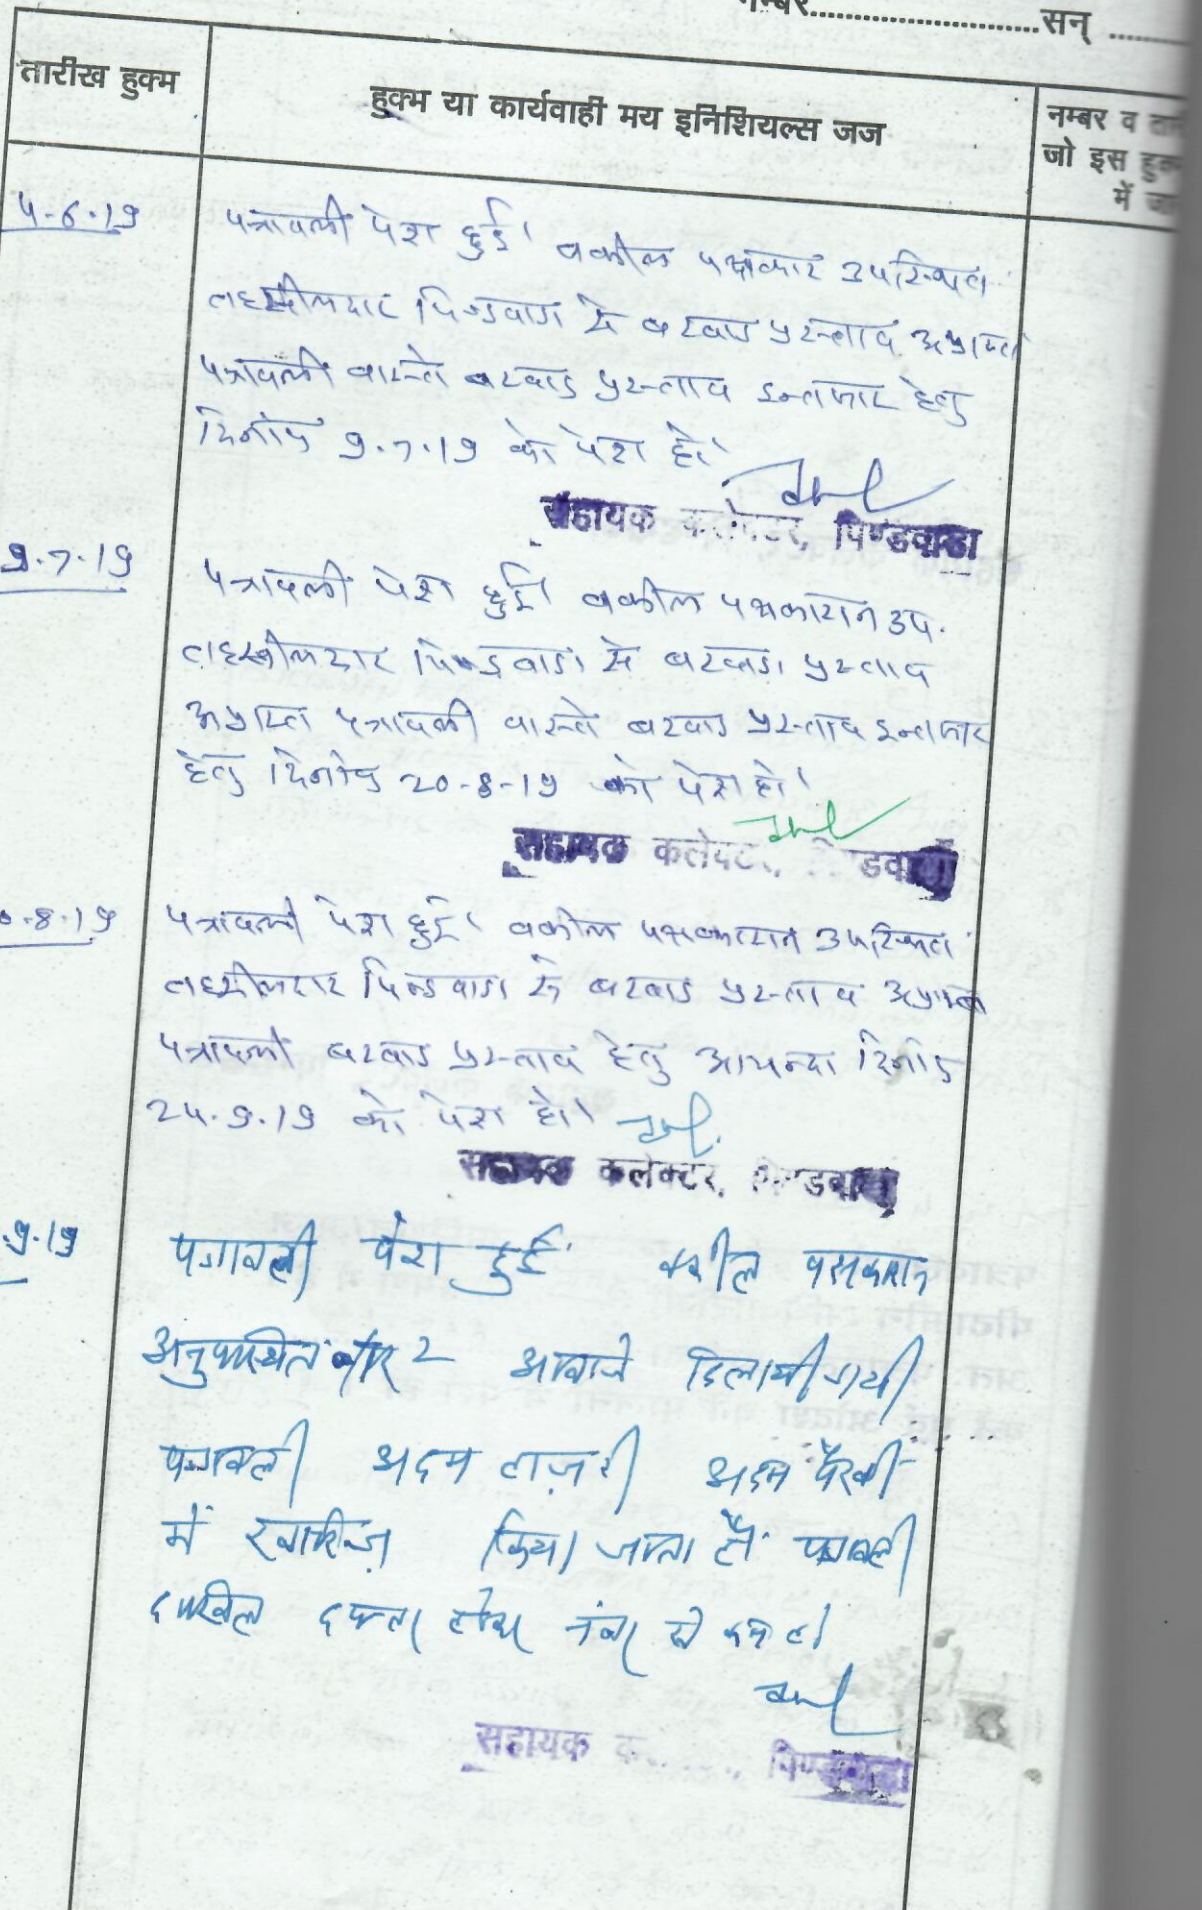 नम्बर..............................सन् ..........
तारीख हुक्म
हुक्म या कार्यवाही मय इनिशियल्स जज
नम्बर व
जो इस
में
4-6-19
पत्रावली पेश हुई। वकील पक्षकार उपस्थित।
तहसीलदार पिण्डवाडा से बटवाडा प्रस्ताव अप्राप्त
पत्रावली वास्ते बटवाडा प्रस्ताव इन्तजार हेतु
दिनांक 9.7.19 को पेश हो।
सहायक कलेक्टर, पिण्डवाडा
9.7.19
पत्रावली पेश हुई। वकील पक्षकारान उप.
तहसीलदार पिण्डवाडा से बटवाडा प्रस्ताव
अप्राप्त पत्रावली वास्ते बटवाडा प्रस्ताव इन्तजार
हेतु दिनांक 20-8-19 को पेश हो।
सहायक कलेक्टर, पिण्डवाडा
0-8-19
पत्रावली पेश हुई। वकील पक्षकारान उपस्थित।
तहसीलदार पिन्डवाडा से बटवाडा प्रस्ताव अप्राप्त
पत्रावली बटवाडा प्रस्ताव हेतु आयन्दा दिनांक
24.9.19 को पेश हो।
सहायक कलेक्टर, पिण्डवाडा
.9.19
पत्रावली पेश हुई वकील पक्षकारान
अनुपस्थित बार 2 आवाजे दिलायी गयी
पत्रावली अदम हाजरी अदम पैरवी
में खारिज किया जाता है पत्रावली
दाखिल दफ्तर होकर नंबर से कम हो
सहायक पिण्डवाडा